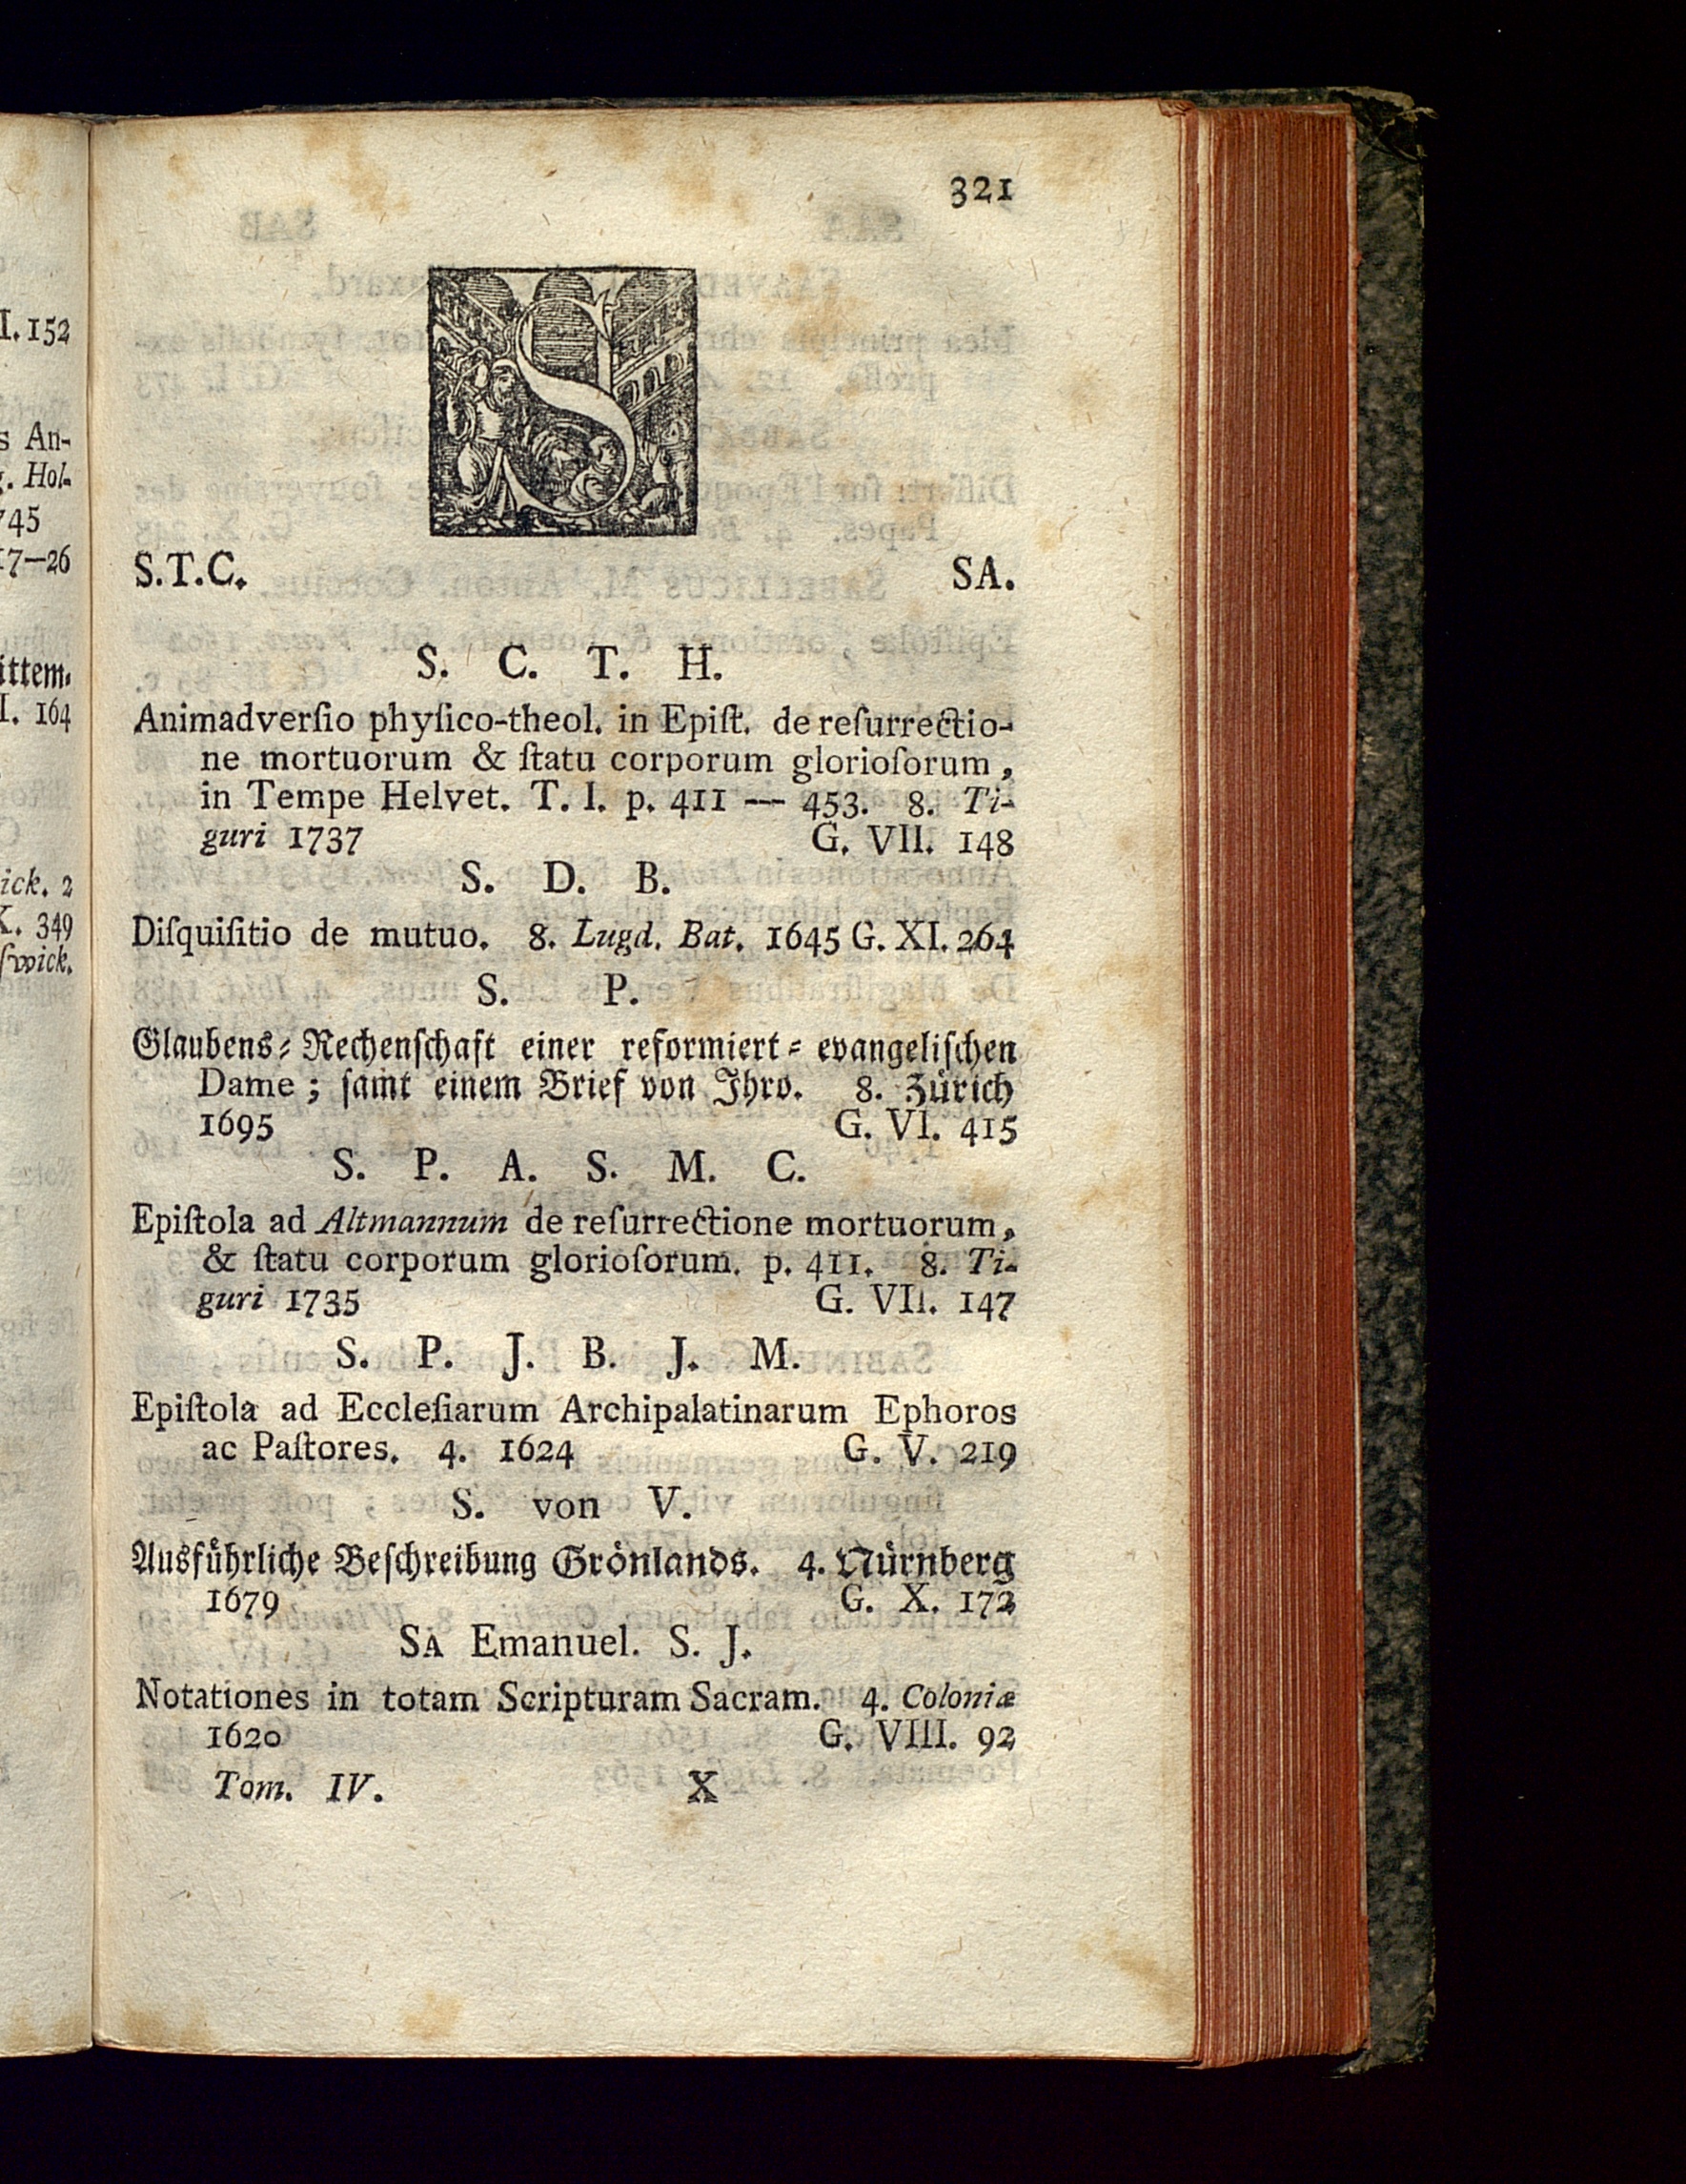 I. 152
s An-
g. Hol-
745
17—26
ittem.
I. 164
ick. 2
X. 349
ſwick.
321
S
S.T.C. SA.
S. C. T. H.
Animadverſio phyſico-theol. in Epiſt. de reſurrectio-
ne mortuorum & ſtatu corporum glorioſorum,
in Tempe Helvet. T. I. p. 411 — 453. 8. Ti-
guri 1737 G. VII. 148
S. D. B.
Diſquiſitio de mutuo. 8. Lugd. Bat. 1645 G. XI. 264
S. P.
Glaubens-Rechenſchaft einer reformiert-evangeliſchen
Dame; ſamt einem Brief von Ihro. 8. Zürich
1695 G. VI. 415
S. P. A. S. M. C.
Epiſtola ad Altmannum de reſurrectione mortuorum,
& ſtatu corporum glorioſorum. p. 411. 8. Ti-
guri 1735 G. VII. 147
S. P. J. B. J. M.
Epiſtola ad Eccleſiarum Archipalatinarum Ephoros
ac Paſtores. 4. 1624 G. V. 219
S. von V.
Ausführliche Beſchreibung Grönlands. 4. Nürnberg
1679 G. X. 172
SA Emanuel. S. J.
Notationes in totam Scripturam Sacram. 4. Coloniæ
1620 G. VIII. 92
Tom. IV. X